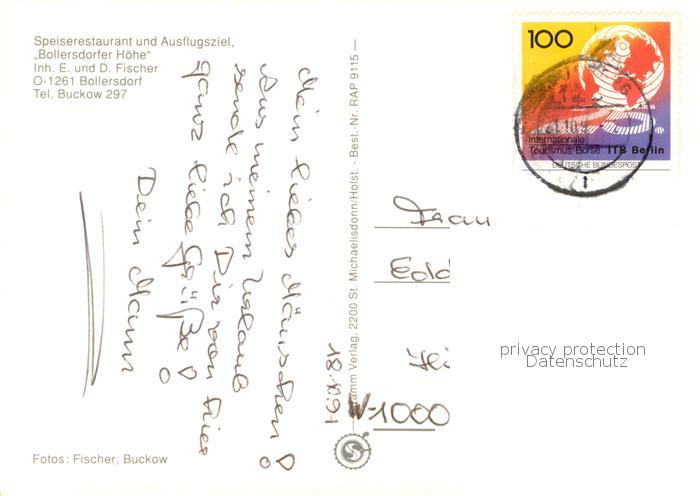 Speiserestaurant und Ausflugsziel,
„Bollersdorfer Höhe"
Inh. E. und D. Fischer
O-1261 Bollersdorf
Tel. Buckow 297
Mein liebes Mäuschen!
Aus meinem Urlaub
sende ich Dir von hier
ganz liebe Grüße!
Dein Mann
Fotos: Fischer, Buckow
Stramm Verlag, 2200 St. Michaelisdonn/Holst. - Best.-Nr. RAP 9115
100
Internationale
Tourismus-Börse ITB Berlin
DEUTSCHE BUNDESPOST
Frau
Edd
W-1000
privacy protection
Datenschutz